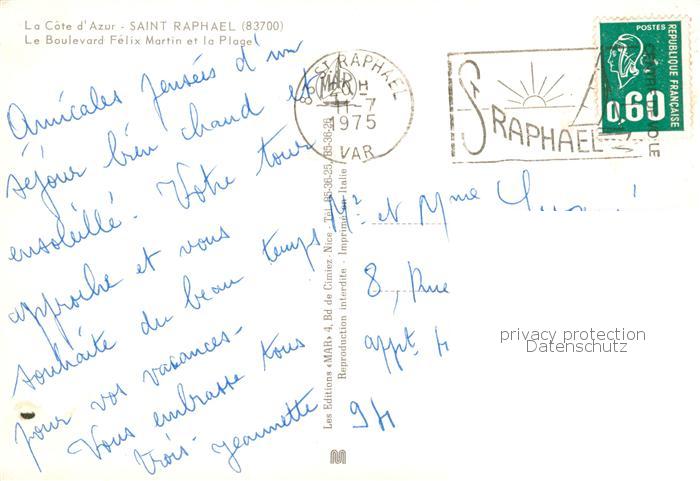 La Côte d'Azur - SAINT RAPHAEL (83700)
Le Boulevard Félix Martin et la Plage
Amicales pensées d'un
séjour bien chaud et
ensoleillé. Votre tour
approche et vous
souhaite du beau temps
pour vos vacances-
Vous embrasse tous
trois- Jeannette
ST RAPHAEL
11-7
1975
VAR
ST RAPHAEL
POSTES
REPUBLIQUE FRANÇAISE
0,60
Les Editions «MAR» 4, Bd de Cimiez - Nice - Tel 85-36-25, 85-36-26
Reproduction interdite - Imprimé en Italie
Mr et Mme
8, Rue
appt 4
94
privacy protection
Datenschutz